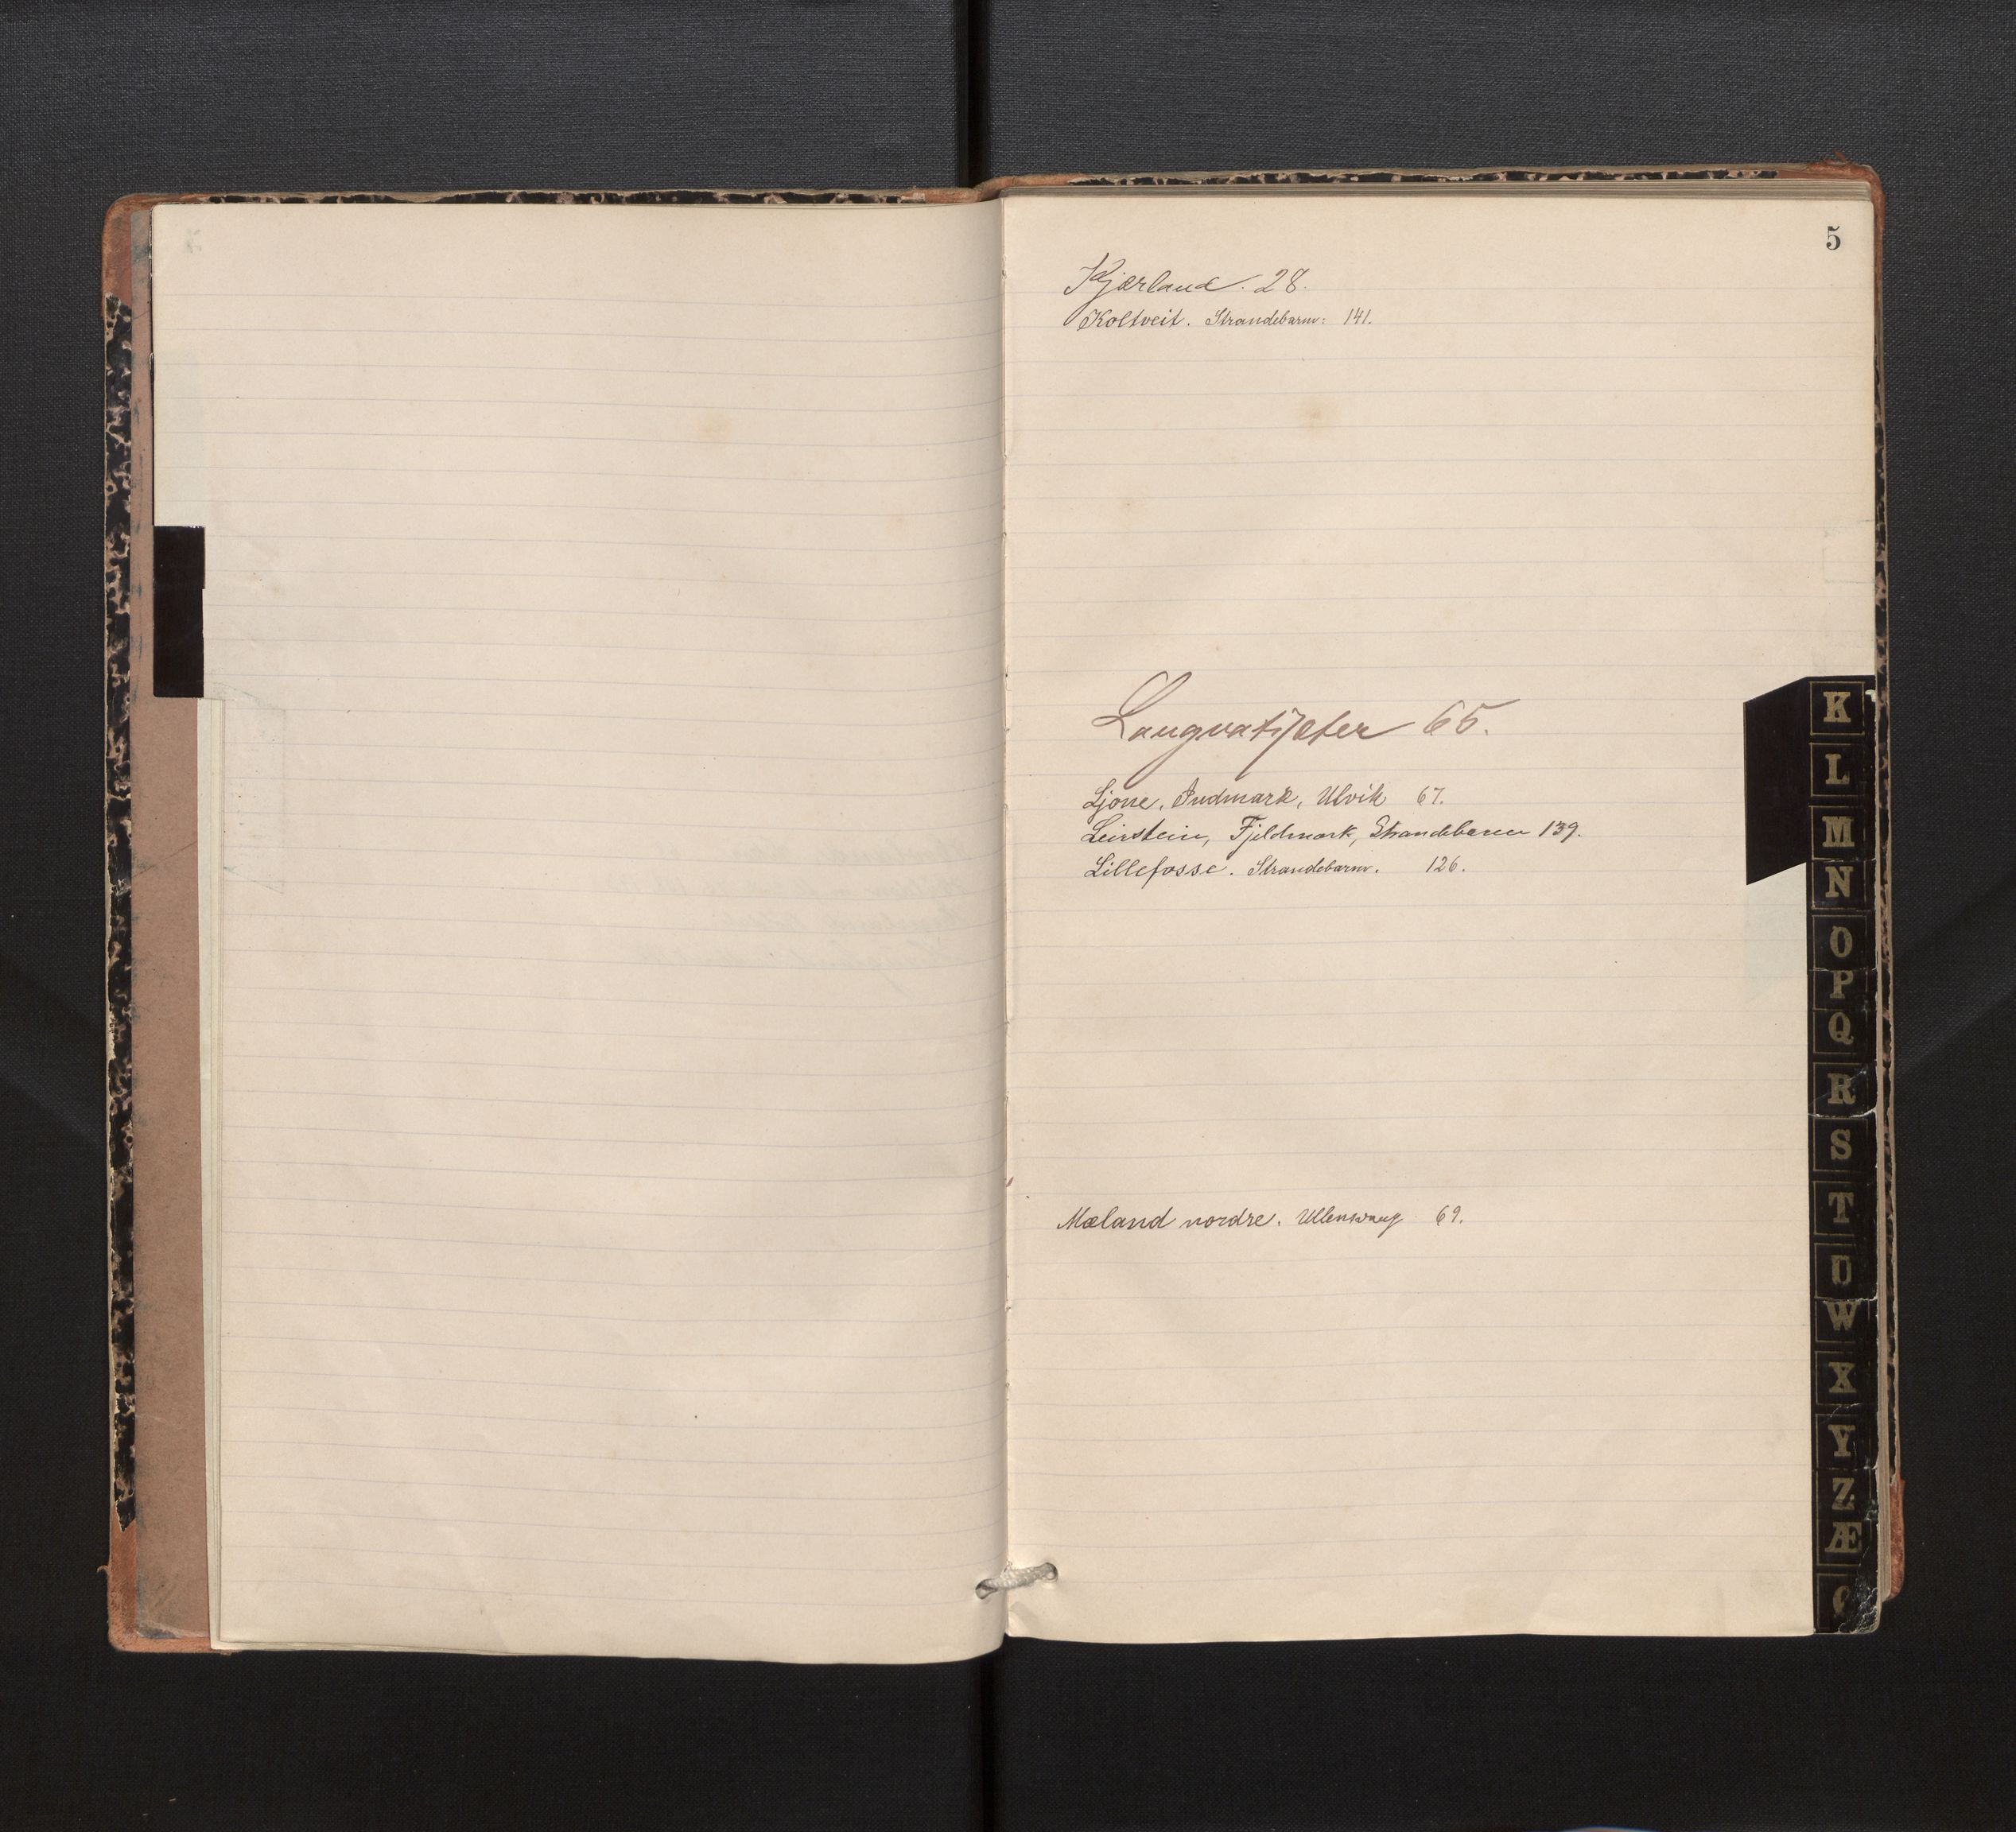 5
Kjærland. 28.
Koltveit. Strandebarm: 141.
65.
Ljone, Indmark, Ulvik 67.
Leirstein, Fjeldmark, Strandebarm 139.
Lillefosse. Strandebarm. 126.
Mæland nordre. Ullensvang 69.
K
L
M
N
O
P
Q
R
S
T
U
W
X
Y
Z
Æ